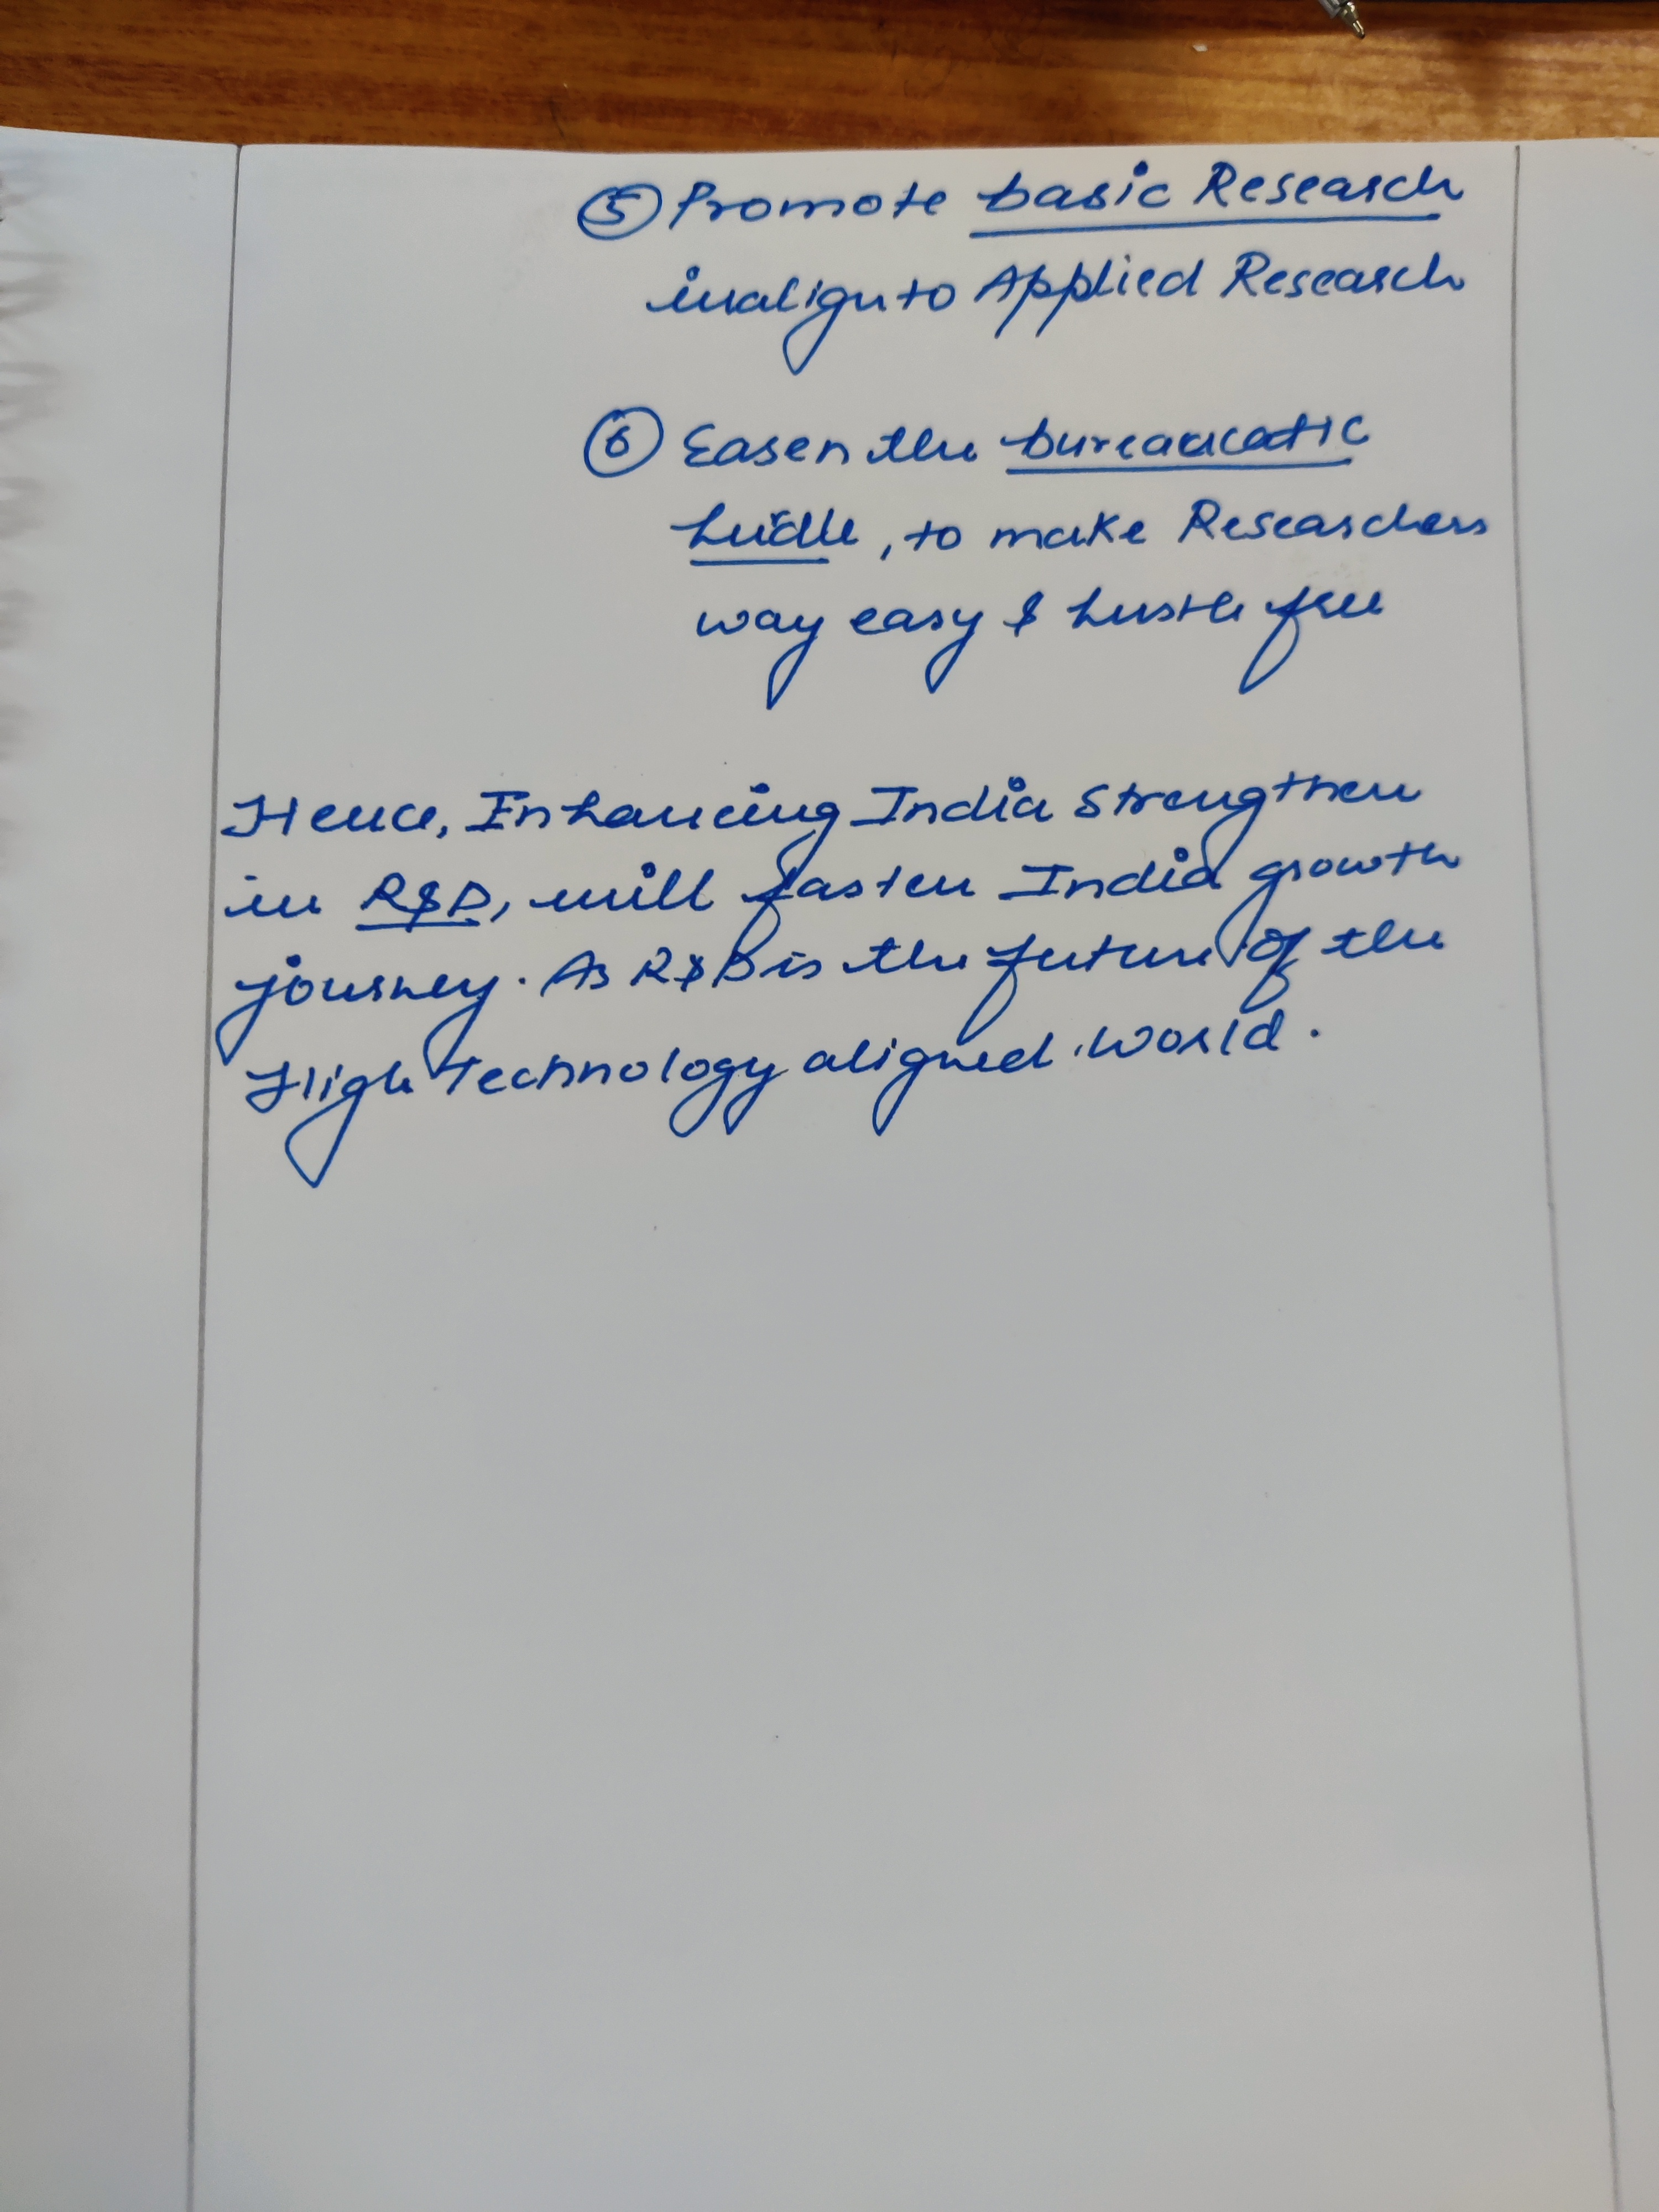 ⑤ Promote basic Research
inalign to Applied Research
⑥ Easen the bureaucatic
hurdle, to make Researchers
way easy & hustle free
Hence, Enhancing India Strengthen
in R&D, will fasten India growth
journey. As R&D is the future of the
High technology aligned world.